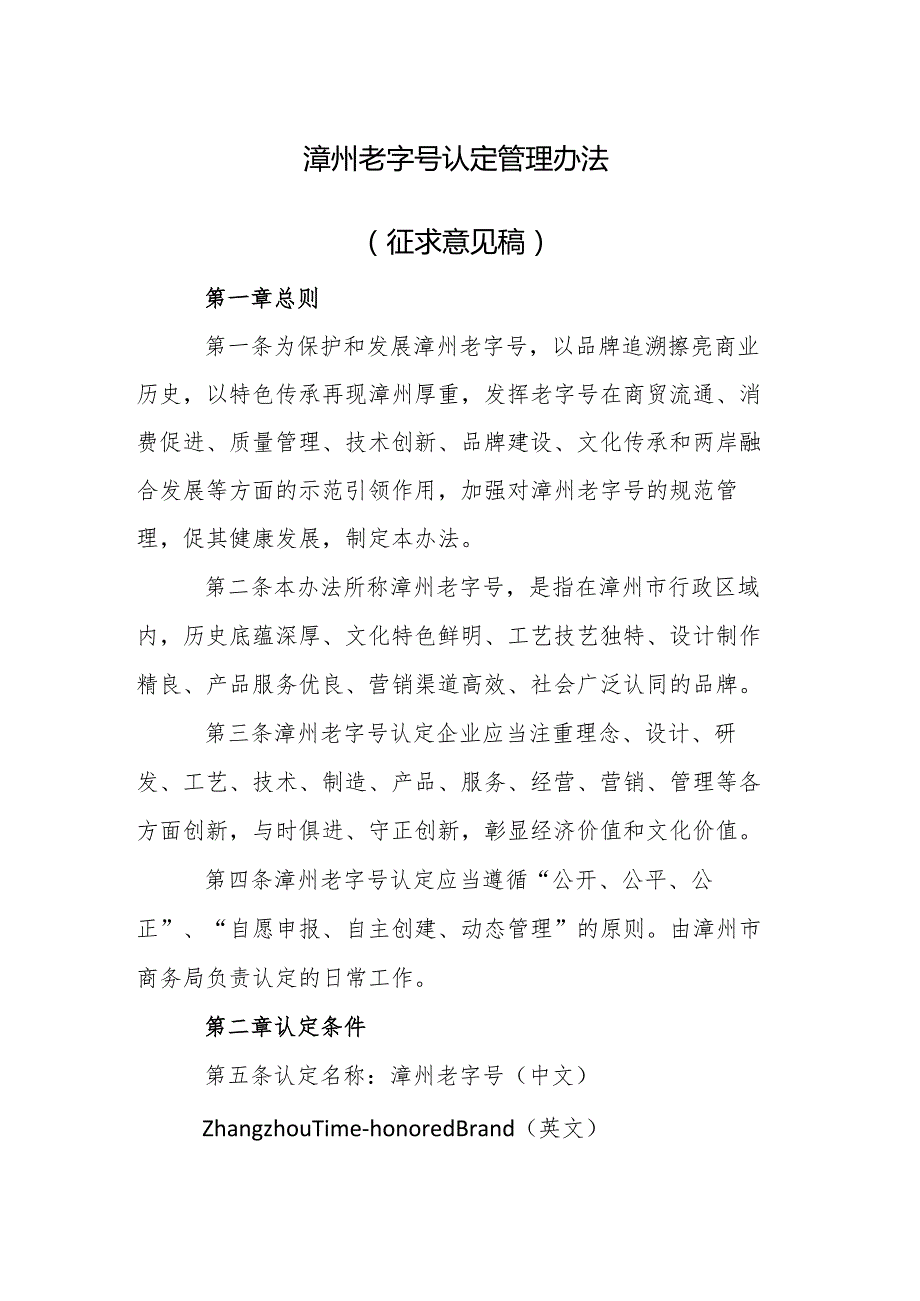 漳州老字号认定管理办法
（征求意见稿）
第一章总则
第一条为保护和发展漳州老字号，以品牌追溯擦亮商业
历史，以特色传承再现漳州厚重，发挥老字号在商贸流通、消
费促进、质量管理、技术创新、品牌建设、文化传承和两岸融
合发展等方面的示范引领作用，加强对漳州老字号的规范管
理，促其健康发展，制定本办法。
第二条本办法所称漳州老字号，是指在漳州市行政区域
内，历史底蕴深厚、文化特色鲜明、工艺技艺独特、设计制作
精良、产品服务优良、营销渠道高效、社会广泛认同的品牌。
第三条漳州老字号认定企业应当注重理念、设计、研
发、工艺、技术、制造、产品、服务、经营、营销、管理等各
方面创新，与时俱进、守正创新，彰显经济价值和文化价值。
第四条漳州老字号认定应当遵循“公开、公平、公
正”、“自愿申报、自主创建、动态管理”的原则。由漳州市
商务局负责认定的日常工作。
第二章认定条件
第五条认定名称：漳州老字号（中文）
ZhangzhouTime-honoredBrand（英文）